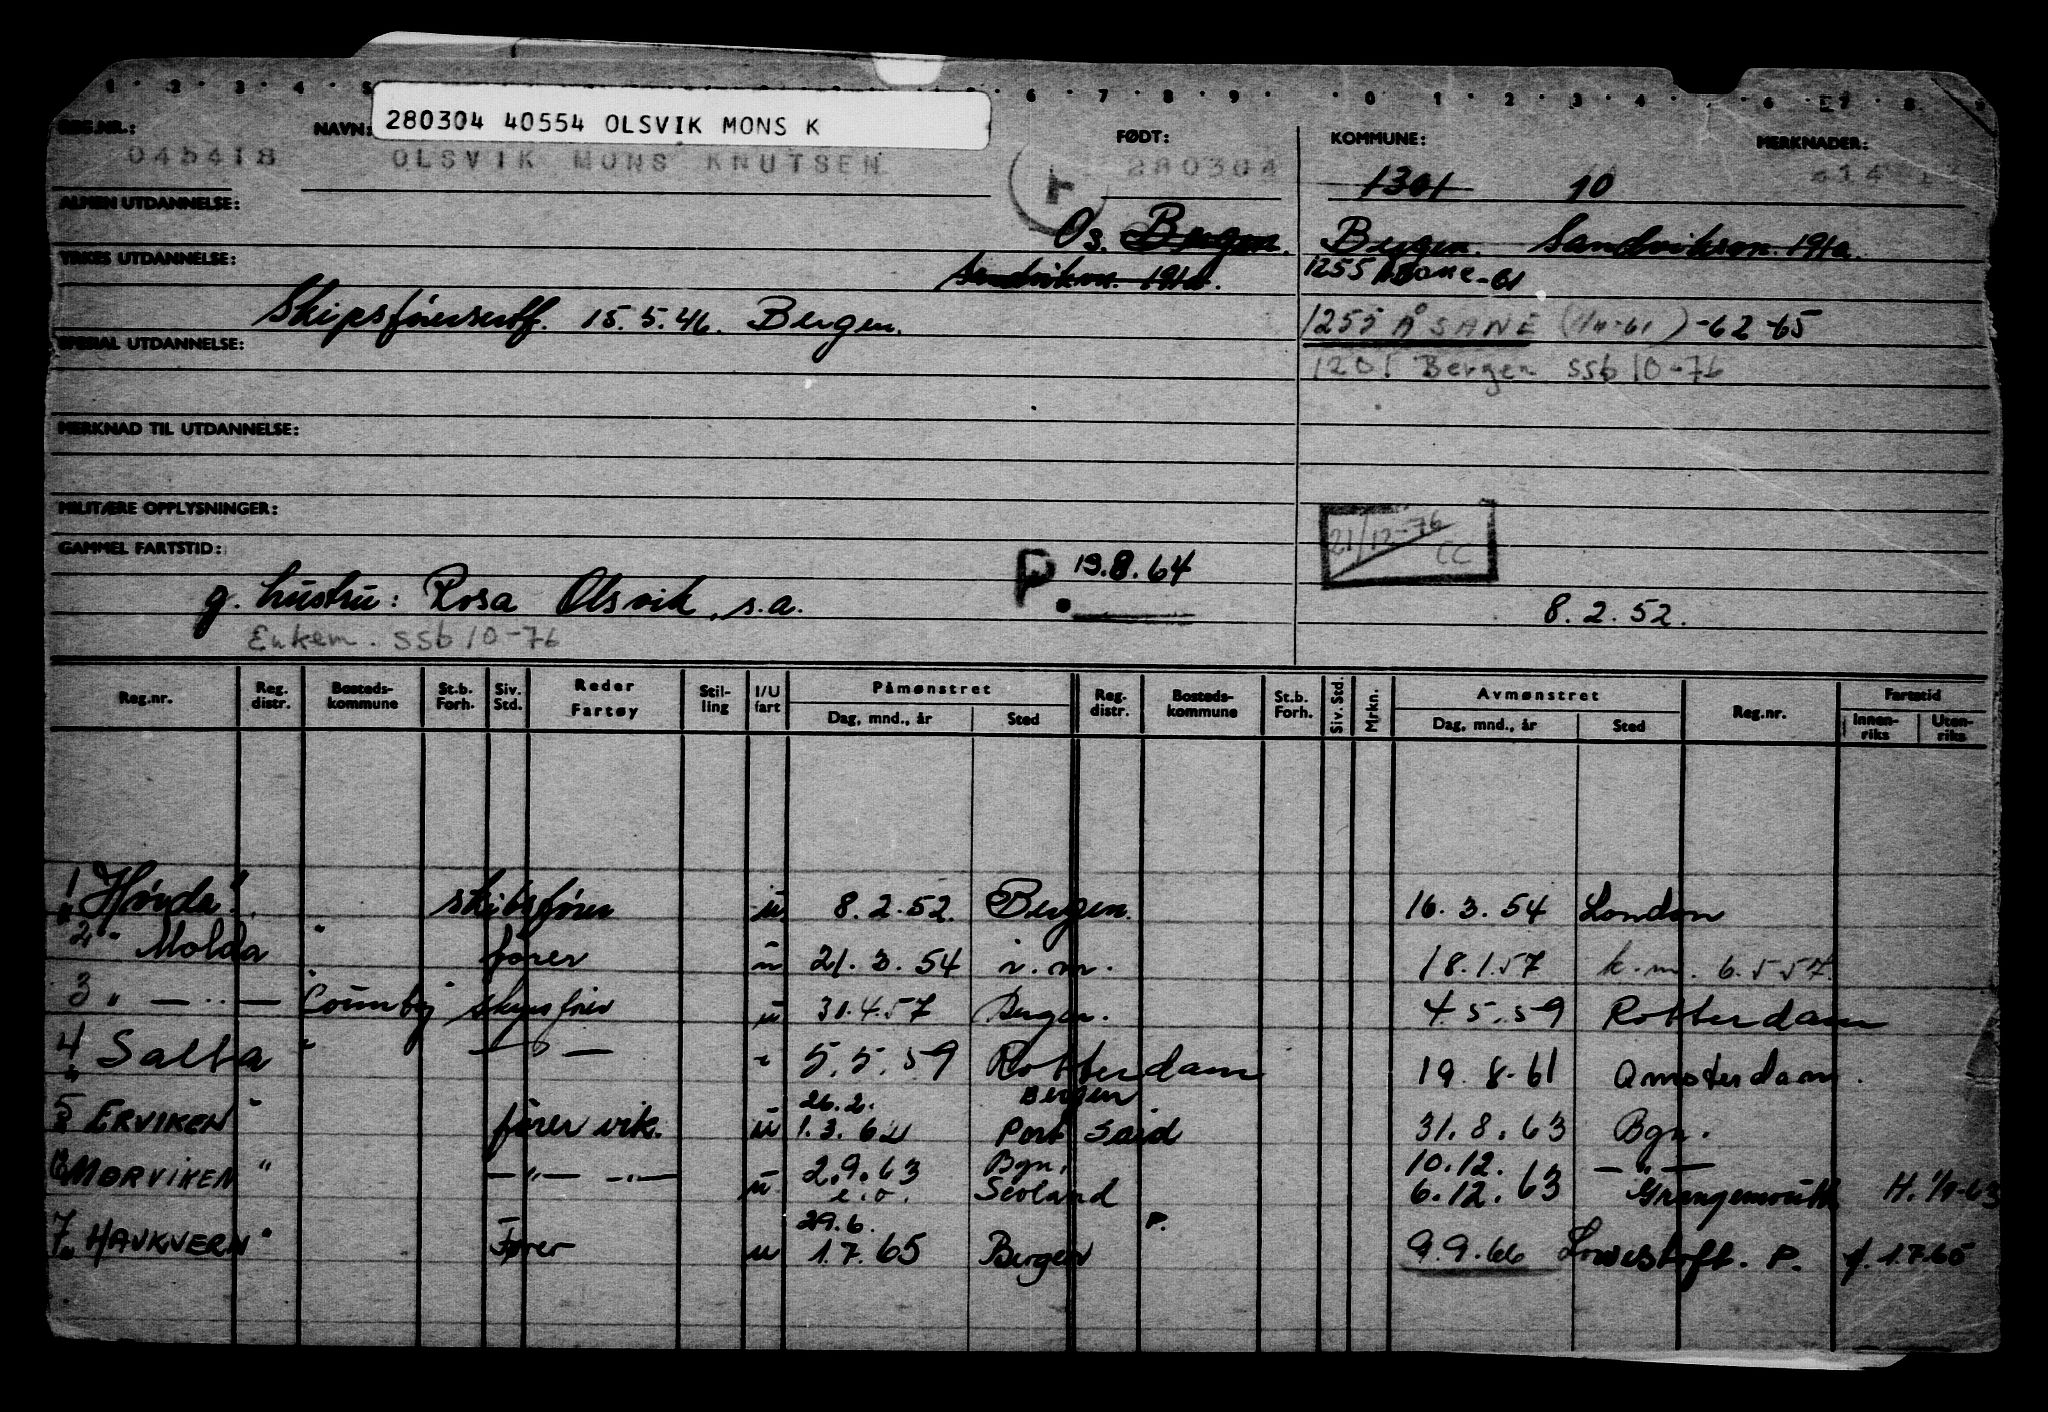 280304 40554 OLSVIK MONS K
REG.NR.: NAVN: FØDT: KOMMUNE: MERKNADER:
045418 OLSVIK MONS KNUTSEN 280304 1301 10
ALMEN UTDANNELSE:
Os. Bergen. Bergen. Sandviksvn. 191a.
YRKES UTDANNELSE:
Sandviksvn. 191a. 1255 Åsane -61
Skipsførersertf. 15.5.46. Bergen. 1255 ÅSANE (1/11-61) -62-65
SPESIAL UTDANNELSE:
1201 Bergen ssb 10-76
MERKNAD TIL UTDANNELSE:
MILITÆRE OPPLYSNINGER:
21/12-76 CC
GAMMEL FARTSTID:
P. 19.8.64
g. hustru: Rosa Olsvik, s.a. 8.2.52.
Enkem. ssb 10-76
Reg.nr. Reg. distr. Bosteds-kommune St.b. Forh. Siv. Std. Reder Fartøy Stil-ling I/U fart Påmønstret Dag, mnd., år Sted Reg. distr. Bosteds-kommune St.b. Forh. Siv. Std. Mrkn. Avmønstret Dag, mnd., år Sted Reg.nr. Fartstid Innen-riks Uten-riks
1 "Hørda" skibsfører u 8.2.52. Bergen. 16.3.54 London
2 " Molda " fører u 21.3.54 i.m. 18.1.57 k.m. 6.5.57.
3 " — " — skipsfører u 31.4.57 Bergen. 4.5.59 Rotterdam
4 " Salta " — " — 5.5.59 Rotterdam 19.8.61 Amsterdam.
26.2. Bergen
5 " ERVIKEN " fører vik. u 1.3.62 Port Said 31.8.63 Bgn.
2.9.63 Bgn. 10.12. — " —
6 MORVIKEN " — " — — " — u e.o. Scoland 6.12.63 Grangemouth H. 1/9-63
29.6. P.
7 " HAUKVERN " Fører u 1.7.65 Bergen 9.9.66 Lowestoft. P. f. 1.7.65